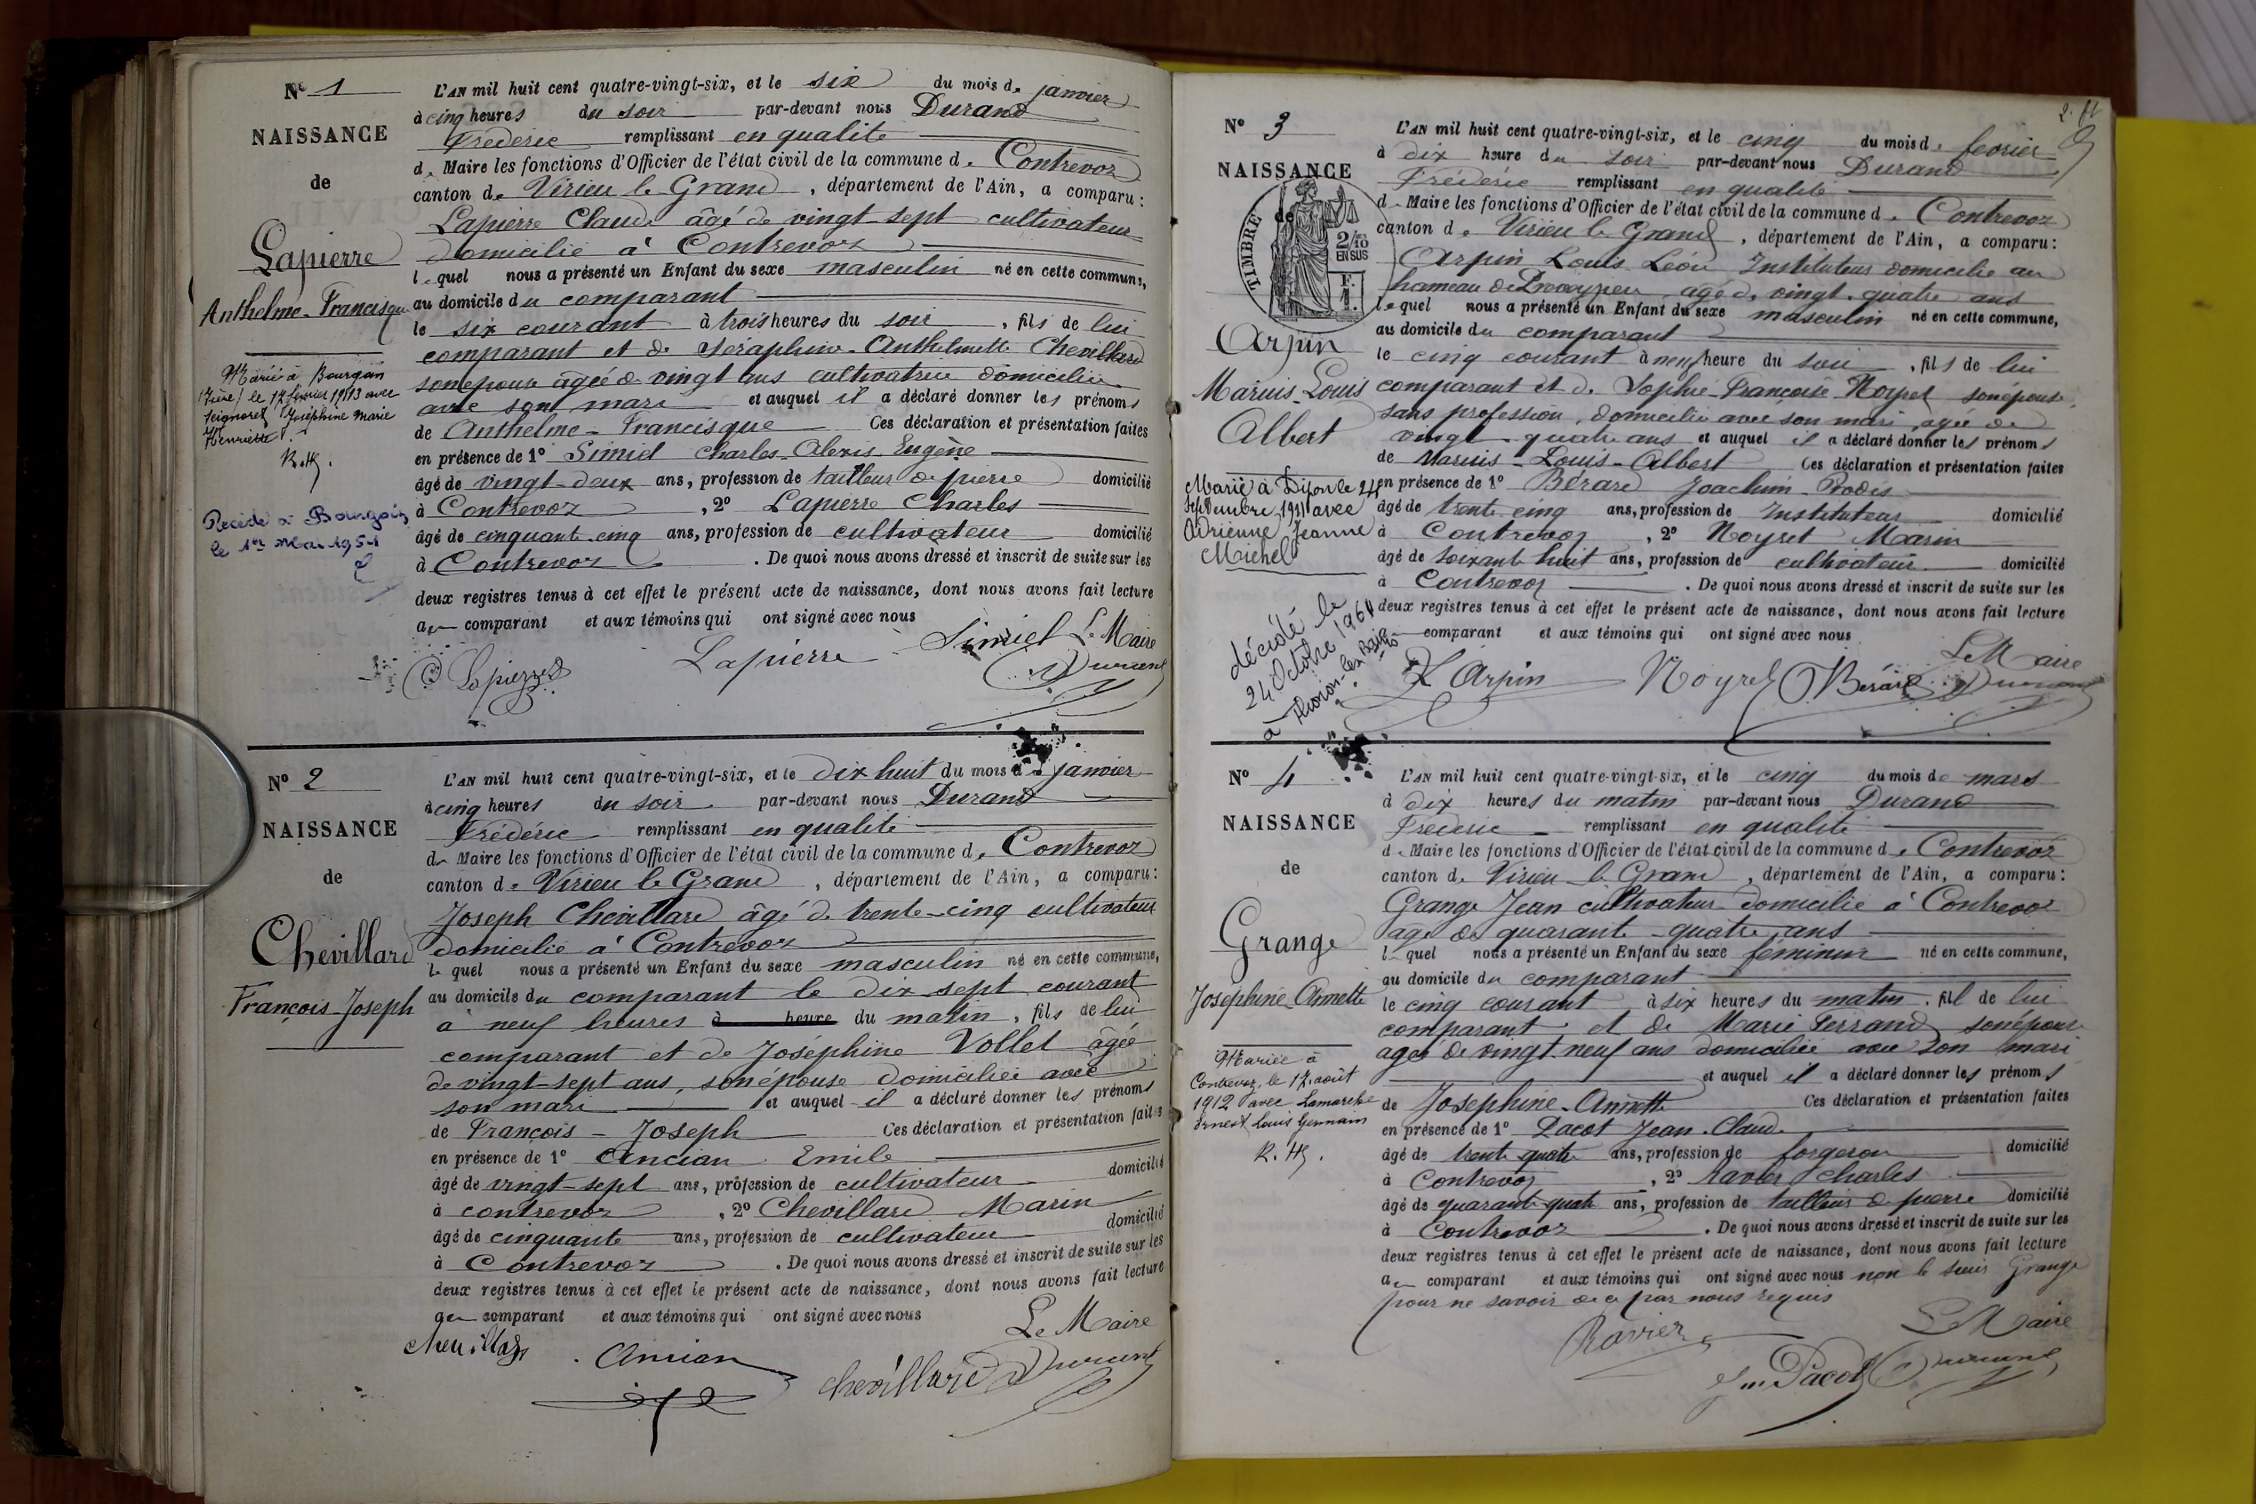 N° 1
NAISSANCE
de
Lapierre
Anthelme-Francisque
Marié à Bourgoin
(Isère) le 17 février 1913 avec
Seignoret Joséphine Marie
Henriette.
Décédé à Bourgoin
le 1er Mai 1951
L'AN mil huit cent quatre-vingt-six, et le six du mois de janvier
à cinq heures du soir par-devant nous Durand
Frédéric remplissant en qualité
de Maire les fonctions d'Officier de l'état civil de la commune de Contrevoz
canton de Virieu le Grand, département de l'Ain, a comparu:
Lapierre Claude âgé de vingt-sept cultivateur
domicilié à Contrevoz
lequel nous a présenté un Enfant du sexe masculin né en cette commune,
au domicile du comparant
le six courant à trois heures du soir, fils de lui
comparant et de Séraphine-Anthelmette Chevillard
son épouse âgée de vingt ans cultivatrice domiciliée
avec son mari et auquel il a déclaré donner les prénoms
de Anthelme-Francisque Ces déclaration et présentation faites
en présence de 1° Simiel Charles-Alexis Eugène
âgé de vingt-deux ans, profession de tailleur de pierre domicilié
à Contrevoz, 2° Lapierre Charles
âgé de cinquante-cinq ans, profession de cultivateur domicilié
à Contrevoz. De quoi nous avons dressé et inscrit de suite sur les
deux registres tenus à cet effet le présent acte de naissance, dont nous avons fait lecture
au comparant et aux témoins qui ont signé avec nous
Lapierre Lapierre Simiel Le Maire
Durand
N° 2
NAISSANCE
de
Chevillard
François-Joseph
L'AN mil huit cent quatre-vingt-six, et le dix huit du mois de janvier
à cinq heures du soir par-devant nous Durand
Frédéric remplissant en qualité
de Maire les fonctions d'Officier de l'état civil de la commune de Contrevoz
canton de Virieu le Grand, département de l'Ain, a comparu:
Joseph Chevillard âgé de trente-cinq cultivateur
domicilié à Contrevoz
lequel nous a présenté un Enfant du sexe masculin né en cette commune,
au domicile du comparant le dix sept courant
à neuf heures à heure du matin, fils de lui
comparant et de Joséphine Vollet âgée
de vingt-sept ans, son épouse domiciliée avec
son mari et auquel il a déclaré donner les prénoms
de François-Joseph Ces déclaration et présentation faites
en présence de 1° Ancian Emile
âgé de vingt-sept ans, profession de cultivateur domicilié
à contrevoz, 2° Chevillard Marin
âgé de cinquante ans, profession de cultivateur domicilié
à Contrevoz. De quoi nous avons dressé et inscrit de suite sur les
deux registres tenus à cet effet le présent acte de naissance, dont nous avons fait lecture
au comparant et aux témoins qui ont signé avec nous
Le Maire
Chevillard Ancian chevillard Durand
N° 3
NAISSANCE
de
TIMBRE
2/10
EN SUS
F.
1.
Arpin
Marius-Louis
Albert
Marié à Dijon le 24
Septembre 1911 avec
Adrienne Jeanne
Michel
décédé le
24 Octobre 1964
à Thonon-les-Bains
L'AN mil huit cent quatre-vingt-six, et le cinq du mois de fevrier
à dix heure du soir par-devant nous Durand
Frédéric remplissant en qualité
de Maire les fonctions d'Officier de l'état civil de la commune de Contrevoz
canton de Virieu le Grand, département de l'Ain, a comparu:
Arpin Louis Léon Instituteur domicilié au
hameau de agé de vingt-quatre ans
lequel nous a présenté un Enfant du sexe masculin né en cette commune,
au domicile du comparant
le cinq courant à neuf heure du soir, fils de lui
comparant et de Sophie-Françoise Noyret son épouse
sans profession, domiciliée avec son mari, agée de
vingt-quatre ans et auquel il a déclaré donner les prénoms
de Marius-Louis-Albert Ces déclaration et présentation faites
en présence de 1° Bérard Joachim
âgé de trente cinq ans, profession de Instituteur domicilié
à Contrevoz, 2° Noyret Marin
âgé de soixante huit ans, profession de cultivateur domicilié
à Contrevoz. De quoi nous avons dressé et inscrit de suite sur les
deux registres tenus à cet effet le présent acte de naissance, dont nous avons fait lecture
comparant et aux témoins qui ont signé avec nous
Le Maire
L Arpin Noyret Bérard Durand
N° 4
NAISSANCE
de
Grange
Joséphine-Annette
Mariée à
Contrevoz, le 17 août
1912 avec Lamarche
Ernest Louis Germain
L'AN mil huit cent quatre-vingt-six, et le cinq du mois de mars
à dix heures du matin par-devant nous Durand
Frédéric remplissant en qualité
de Maire les fonctions d'Officier de l'état civil de la commune de Contrevoz
canton de Virieu le Grand, département de l'Ain, a comparu:
Grange Jean cultivateur domicilié à Contrevoz
agé de quarante-quatre ans
lequel nous a présenté un Enfant du sexe féminin né en cette commune,
au domicile du comparant
le cinq courant à six heures du matin. fil de lui
comparant et de Marie Perrand son épouse
agée de vingt neuf ans domiciliée avec son mari
et auquel il a déclaré donner les prénoms
de Josephine-Annette Ces déclaration et présentation faites
en présence de 1° Pacot Jean-Claude
âgé de trente quatre ans, profession de forgeron domicilié
à Contrevoz, 2° Ravier Charles
âgé de quarante quatre ans, profession de tailleur de pierre domicilié
à Contrevoz. De quoi nous avons dressé et inscrit de suite sur les
deux registres tenus à cet effet le présent acte de naissance, dont nous avons fait lecture
au comparant et aux témoins qui ont signé avec nous non le sieur Grange
pour ne savoir de ce par nous requis
Ravier Le Maire
Pacot Durand